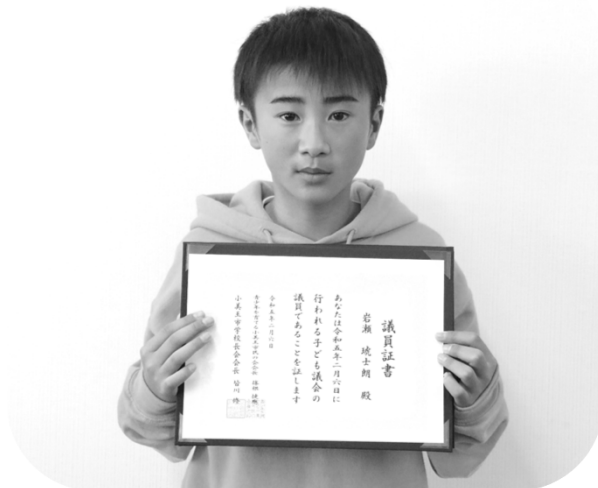 議員証書
岩瀬 琥士朗 殿
あなたは令和五年二月六日に
行われる子ども議会の
議員であることを証します
令和五年二月六日
小美玉市学校長会会長 皆川 修